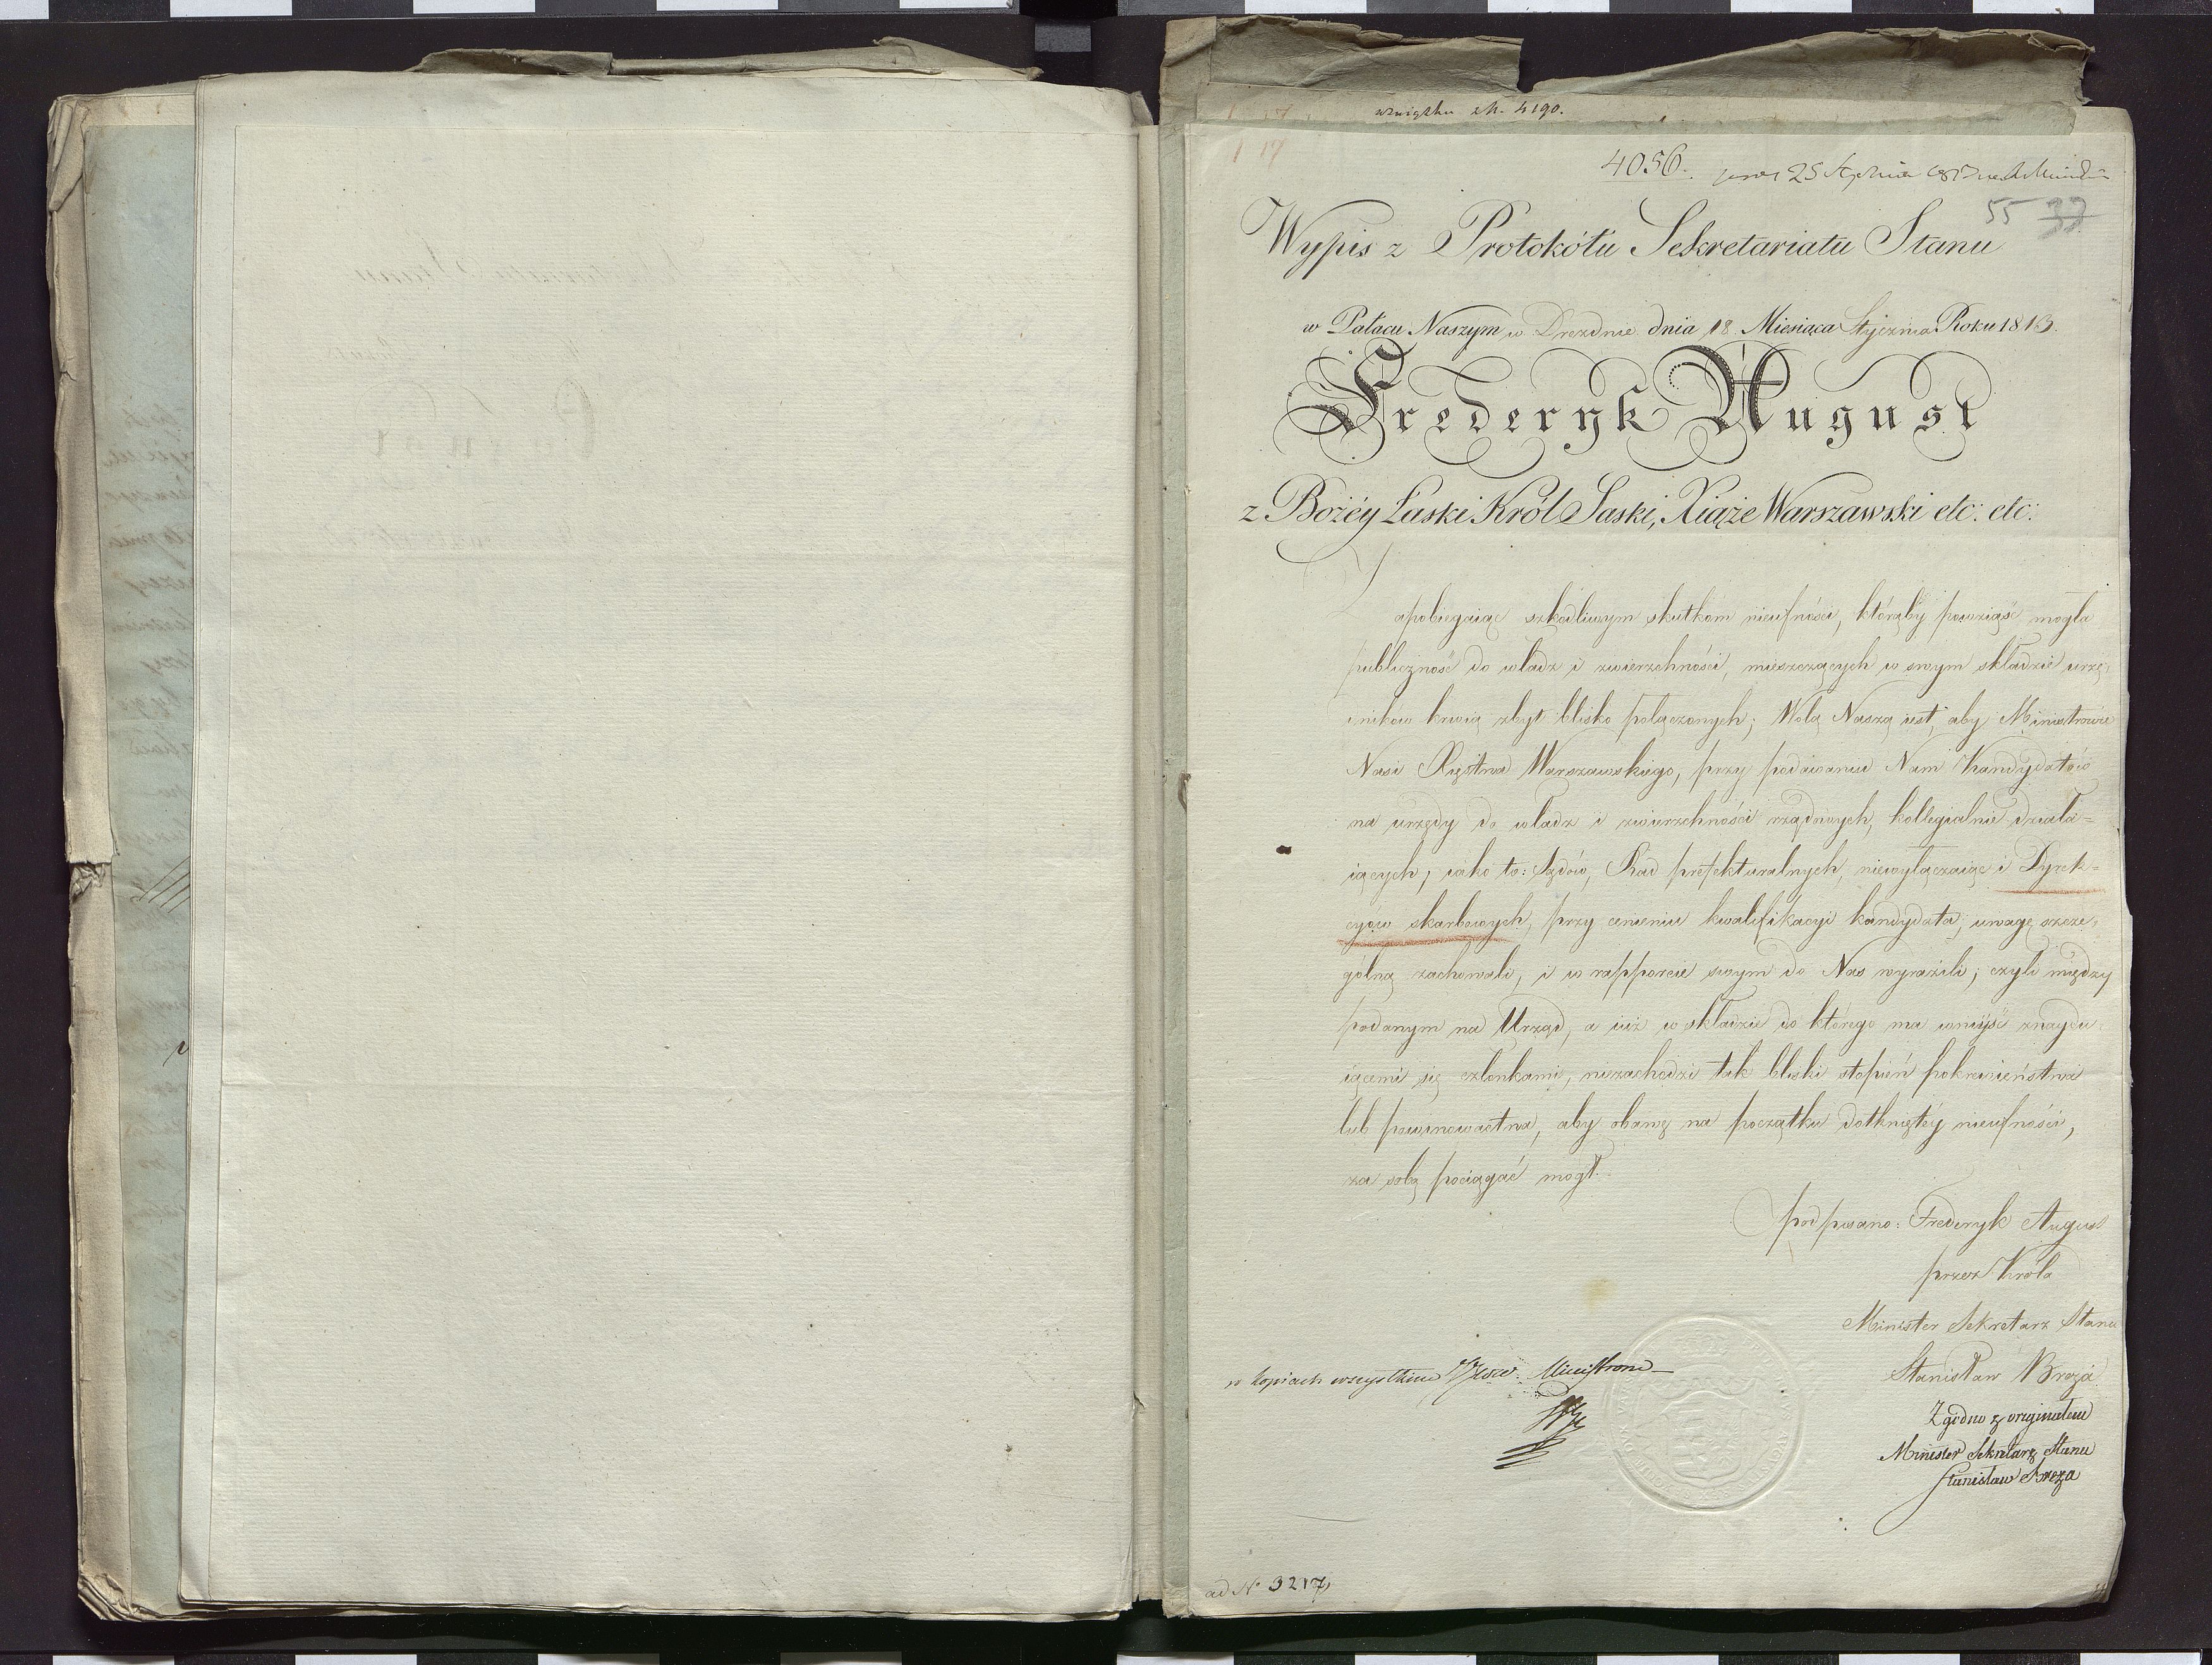 w związku z N. 4190.
4056.
55 33
Wypis z Protokółu Sekretariatu Stanu
w Pałacu Naszym w Dreźdnie dnia 18 Miesiąca Stycznia Roku 1813.
Frederyk August
z Bożéy Łaski Król Saski, Xiąże Warszawski etc: etc:
Zapobiegaiąc szkodliwym skutkom nieufności, którąby powziąść mogła
publiczność do władz i zwierzchności, mieszczących w swym składzie urzę-
dników krwią zbyt blisko połączonych; Wolą Naszą iest, aby Ministrowie
Nasi Xięstwa Warszawskiego, przy podawaniu Nam Kandydatów
na urzędy do władz i zwierzchności rządowych, kollegialnie działa=
iących, iako to: Sądów, Rad prefekturalnych, niewyłączaiąc i Dyrek=
cyów skarbowych, przy cenieniu kwalifikacyi kandydata, uwagę szcze-
gólną zachowali, i w rapporcie swym do Nas wyraźili; czyli między
podanym na Urząd, a iuż w składzie do którego ma wniyść znaydu-
iącemi się członkami, niezachodzi tak bliski stopień pokrewieństwa
lub powinowactwa, aby obawę na początku dotkniętéy nieufności,
za sobą pociągać mogł.
podpisano: Frederyk August
przez Króla
Minister Sekretarz Stanu
Stanisław Breza
Zgodno z oryginałem
Minister Sekretarz Stanu
Stanisław Breza
w kopiach wszystkim Ministrom
ad N° 3217,